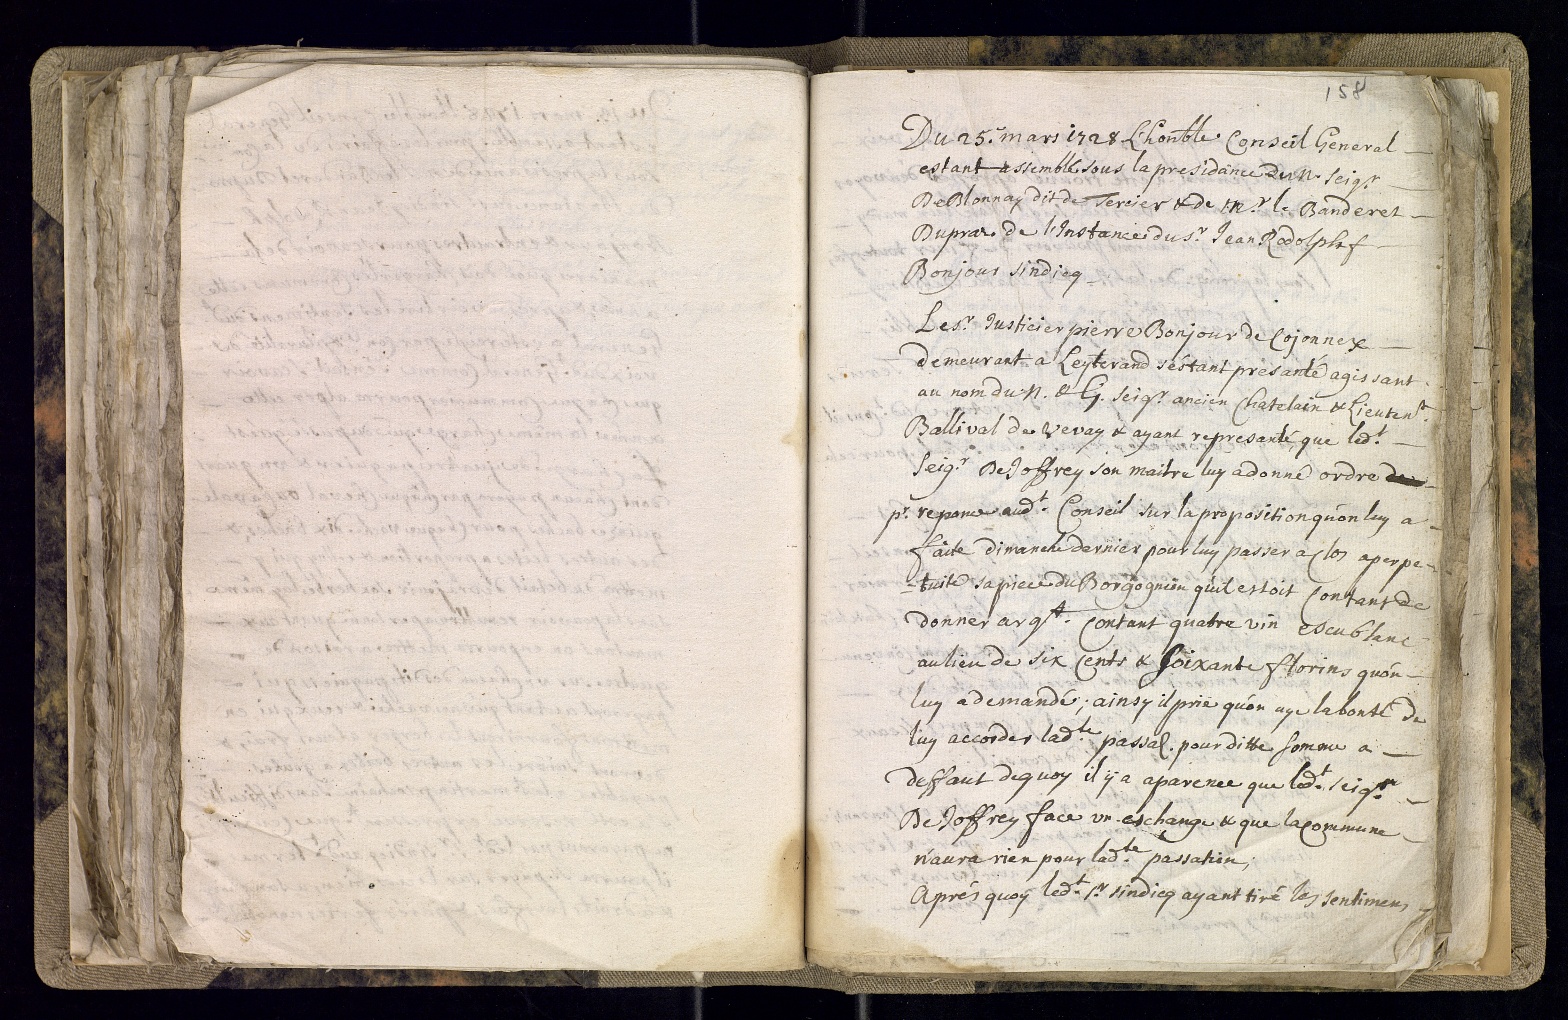 158
Du 25.e mars 1728 L'honble Conseil General
estant assemblé sous la presidance du N. Seigr
De Blonnay dit de Tercier & de Mr. le Banderet
Dupraz de l'Instance du sr Jean Rodolphf
Bonjour sindicq
Le sr Justicier pierre Bonjour de Cojonnex
demeurant a Leyterand s'éstant presanté agissant
au nom du N. & G. Seigr ancien Chatelain & Lieutent
Ballival de Vevay & ayant represanté que ledt
Seigr De Joffrey son maitre luy a donné ordre
pr. repome audt Conseil sur la proposition qu'on luy a
faite dimanche dernier pour luy passer a Clos a perpe-
-tuité sa piece du Borgognion qu'il estoit Contant de
donner argt. Contant quatre vin escublanc
au lieu de six Cents & soixante florins qu'on
luy a demandé; ainsy il prie qu'on aye la bonté de
luy accorder ladte passaõ. pour ditte somme a
deffaut dequoy il y a aparence que ledt Seigr
De Joffrey face un eschange & que la Commune
n'aura rien pour ladte passation;
Aprés quoy ledt sr sindicq ayant tiré les sentimens